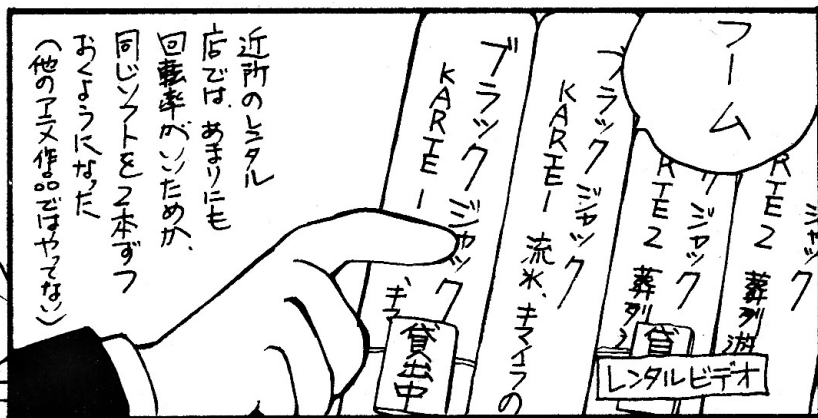 フーム
ブラックジャック
KARTE2 葬列遊
ブラックジャック
RTE2 葬列
貸
レンタルビデオ
ブラックジャック
KARTE1 流氷、キマイラの
ブラックジャック
KARTE1
キマ
貸出中
近所のレンタル
店では、あまりにも
回転率がいいためか、
同じソフトを2本ずつ
おくようになった
(他のアニメ作品ではやってない)